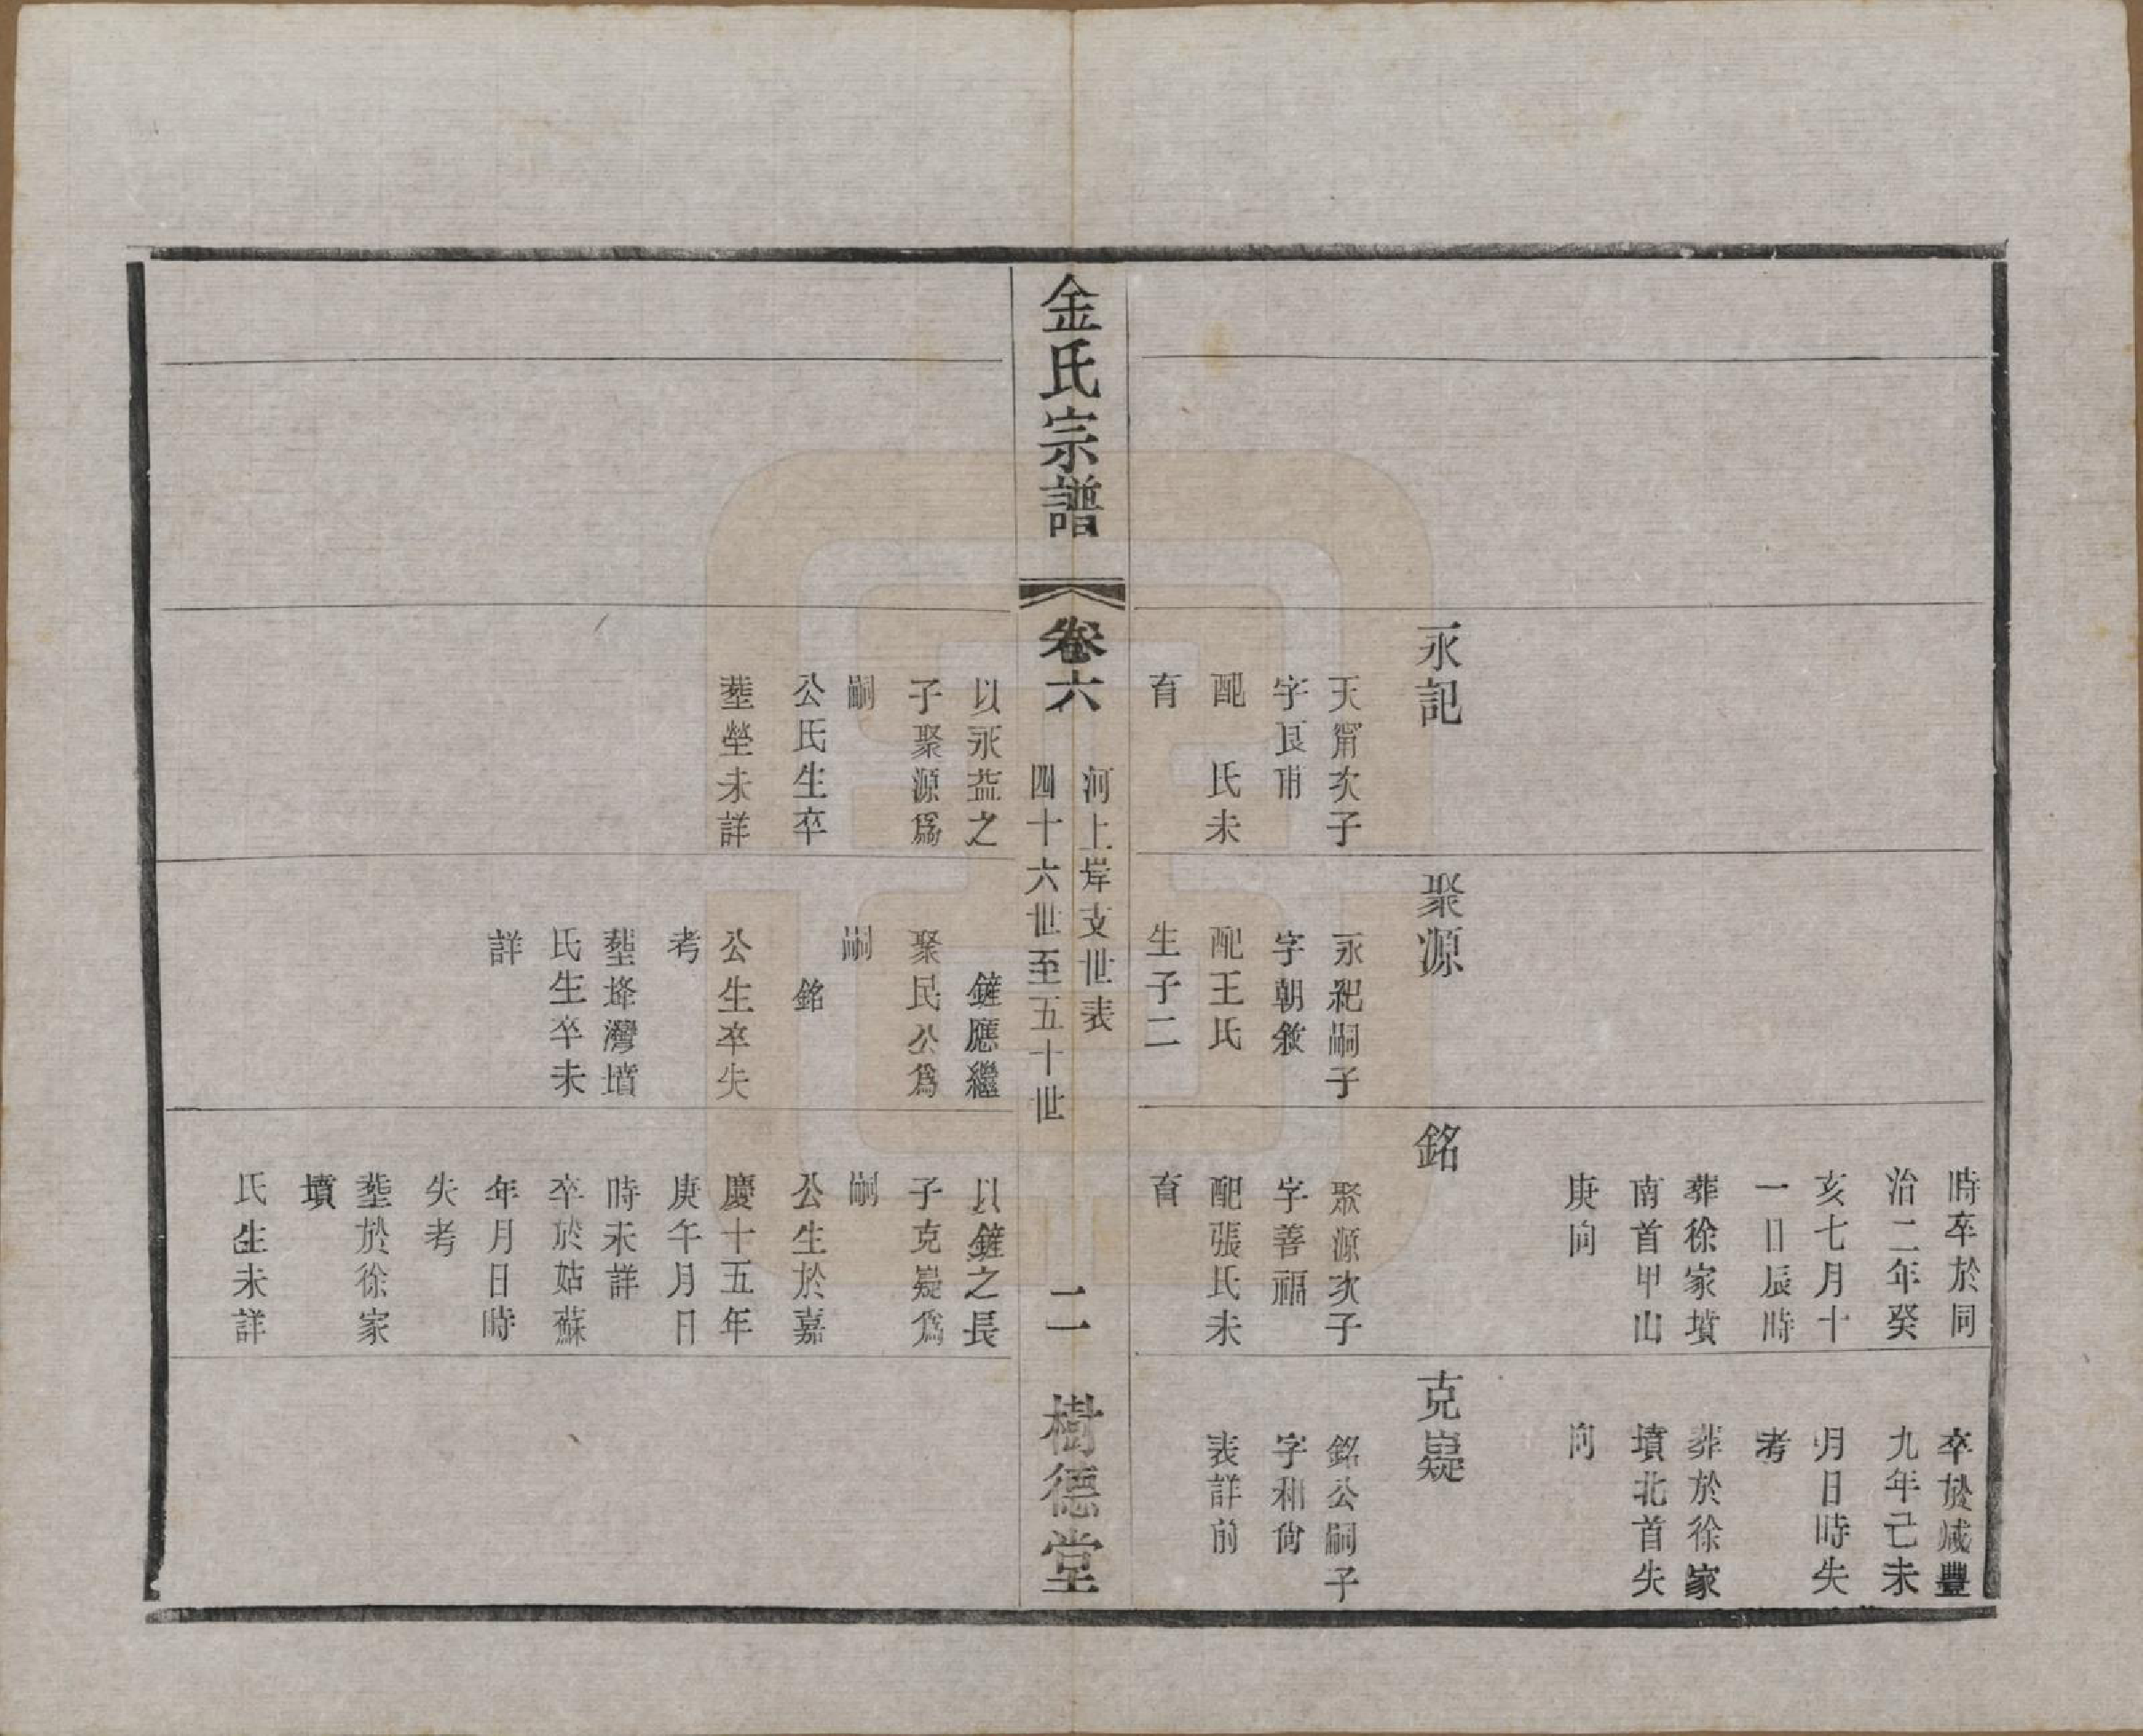 時卒於同
治二年癸
亥七月十
一日辰時
葬徐家墳
南首甲山
庚向
卒於咸豐
九年己未
月日時失
考
葬於徐家
墳北首失
向
永記
天甯次子
字艮甫
配　氏未
育
聚源
永紀嗣子
字朝敘
配王氏
生子二
銘
聚源次子
字善福
配張氏未
育
克嶷
銘公嗣子
字和尙
表詳前
金氏宗譜
卷六
河上岸支世表
四十六世至五十世
二
樹德堂
以永益之
子聚源爲
嗣
公氏生卒
塟塋未詳
鏟應繼
聚民公爲
嗣
銘
公生卒失
考
塟埄灣墳
氏生卒未
詳
以鏟之長
子克嶷爲
嗣
公生於嘉
慶十五年
庚午月日
時未詳
卒於姑蘇
年月日時
失考
塟於徐家
墳
氏生未詳